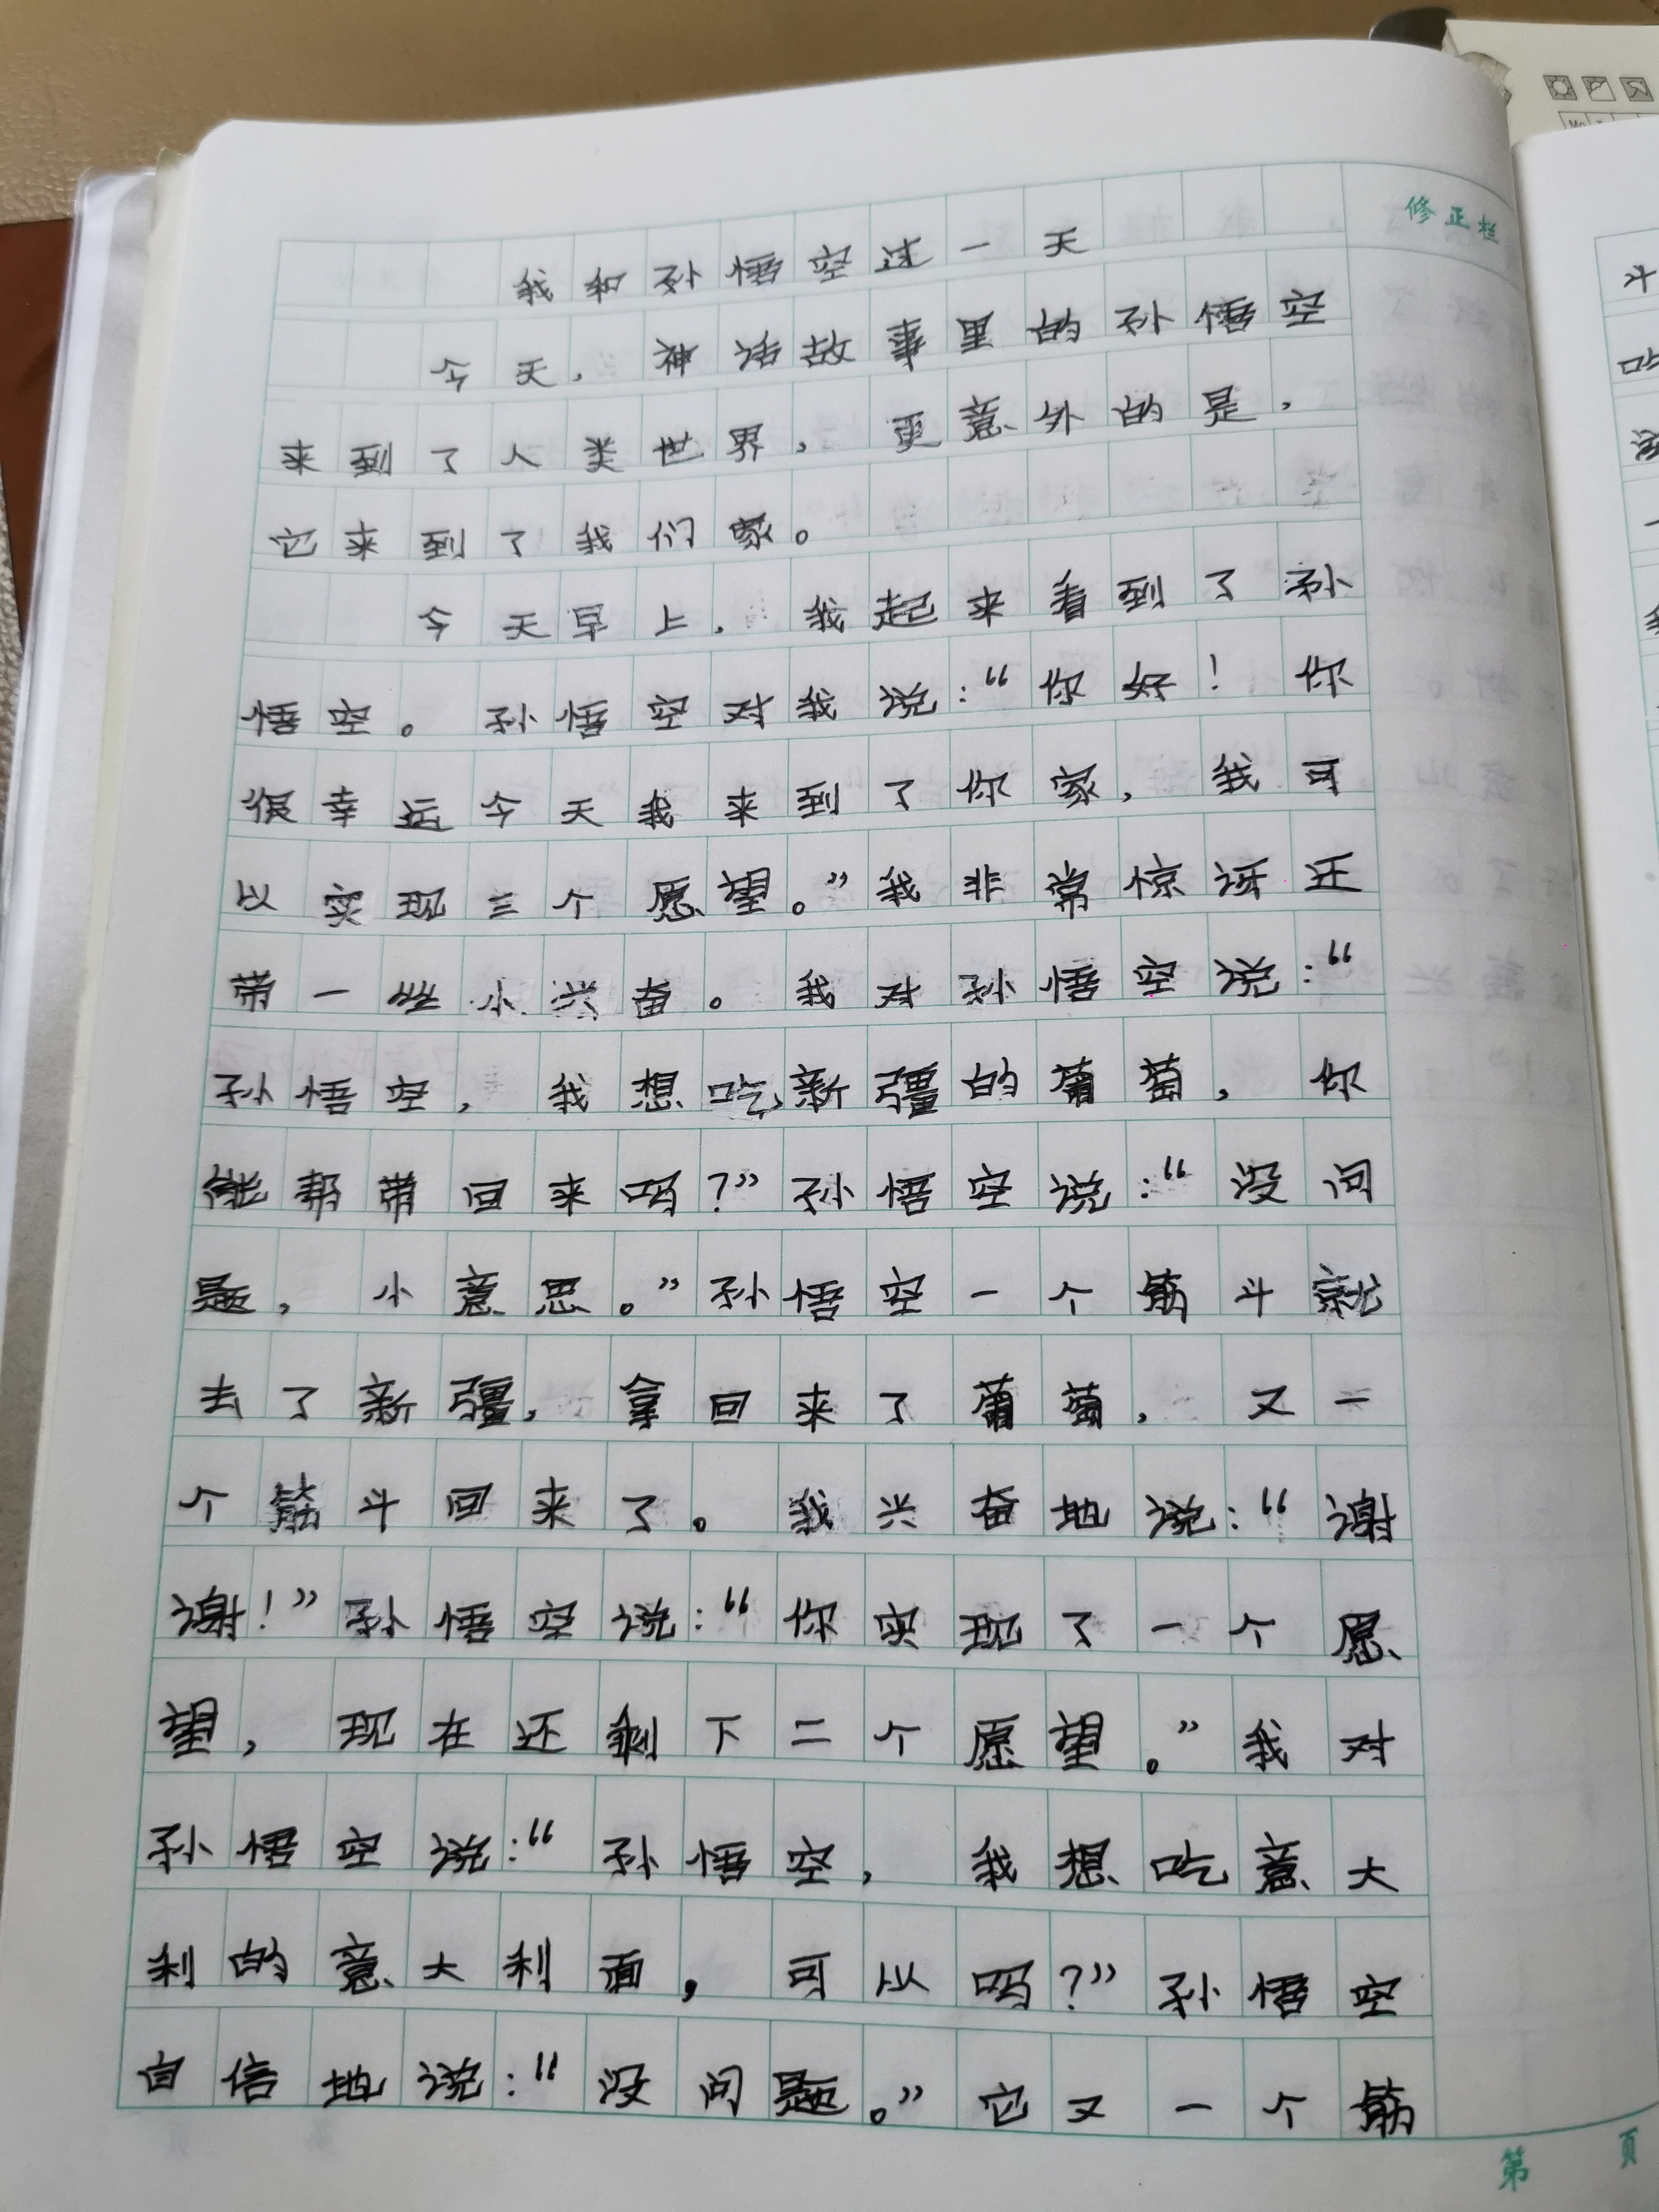 修正栏
我和孙悟空过一天
今天，神话故事里的孙悟空
来到了人类世界，更意外的是，
它来到了我们家。
今天早上，我起来看到了孙
悟空。孙悟空对我说：“你好！你
很幸运今天我来到了你家，我可
以实现三个愿望。”我非常惊讶还
带一丝小兴奋。我对孙悟空说：“
孙悟空，我想吃新疆的葡萄，你
能帮带回来吗？”孙悟空说：“没问
题，小意思。”孙悟空一个筋斗就
去了新疆，拿回来了葡萄，又一
个筋斗回来了。我兴奋地说：“谢
谢！”孙悟空说：“你实现了一个愿
望，现在还剩下二个愿望。”我对
孙悟空说：“孙悟空，我想吃意大
利的意大利面，可以吗？”孙悟空
自信地说：“没问题。”它又一个筋
第 页
斗